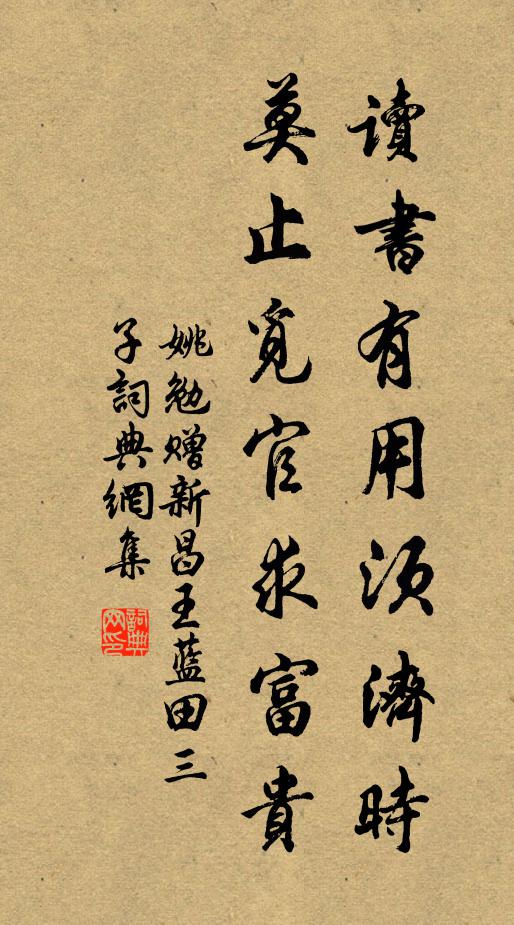 讀書有用須濟時
莫止覓官求富貴
姚勉贈新昌王藍田三
子詞典網集
詞典网印